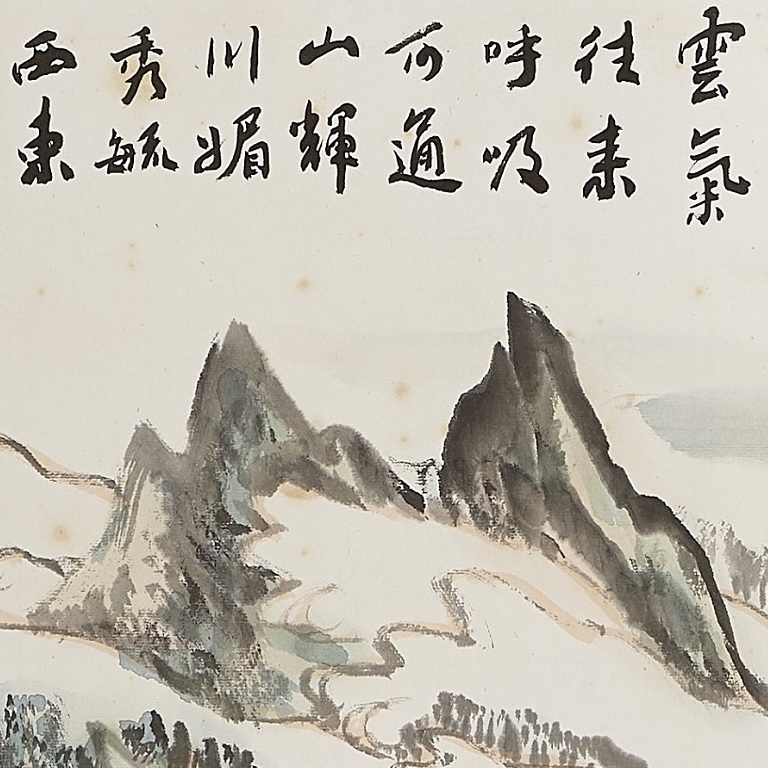 雲氣
往来
呼吸
可通
山輝
川媚
秀毓
西東